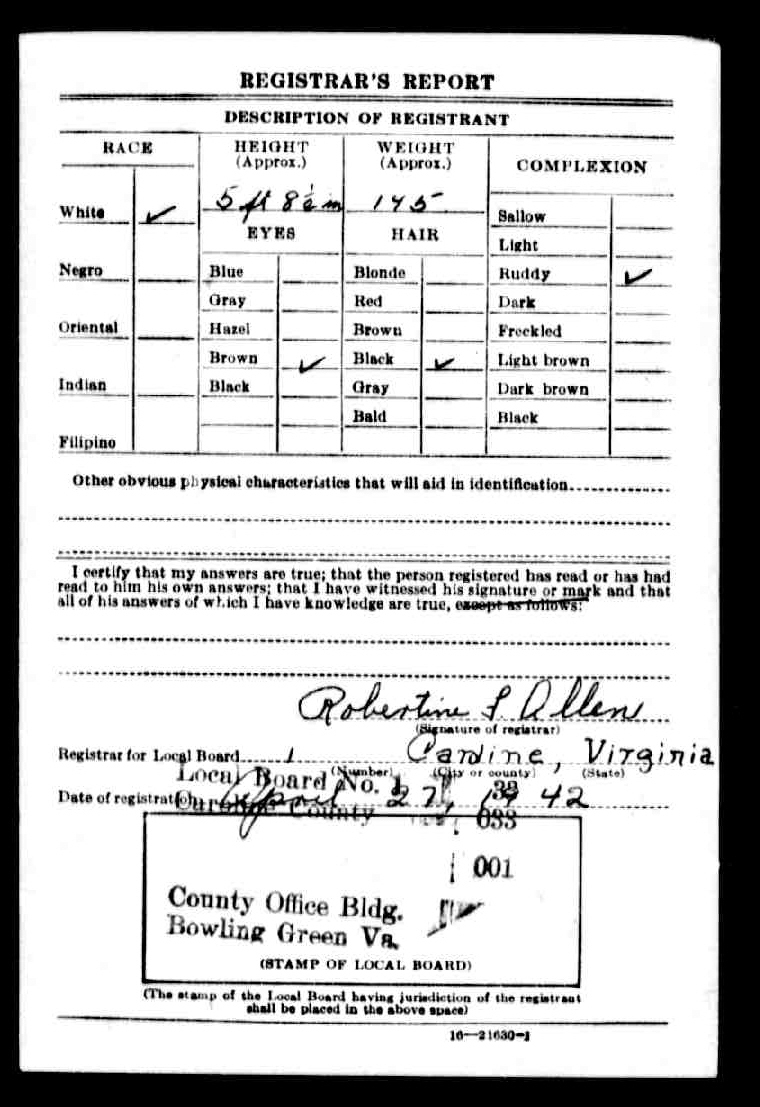 REGISTRAR'S REPORT
DESCRIPTION OF REGISTRANT
RACE
HEIGHT (Approx.)
WEIGHT (Approx.)
COMPLEXION
White ✓
5 ft 8½ in
145
Sallow
EYES
HAIR
Light
Negro
Blue
Blonde
Ruddy ✓
Gray
Red
Dark
Oriental
Hazel
Brown
Freckled
Brown ✓
Black ✓
Light brown
Indian
Black
Gray
Dark brown
Bald
Black
Filipino
Other obvious physical characteristics that will aid in identification
I certify that my answers are true; that the person registered has read or has had
read to him his own answers; that I have witnessed his signature or mark and that
all of his answers of which I have knowledge are true, except as follows:
Robertine L. Allen
(Signature of registrar)
Registrar for Local Board 1 Caroline, Virginia
(Number) (City or county) (State)
Local Board No. 1
33
Date of registration April 27, 1942
Caroline County
033
001
County Office Bldg.
Bowling Green Va.
(STAMP OF LOCAL BOARD)
(The stamp of the Local Board having jurisdiction of the registrant
shall be placed in the above space)
16—21630-1